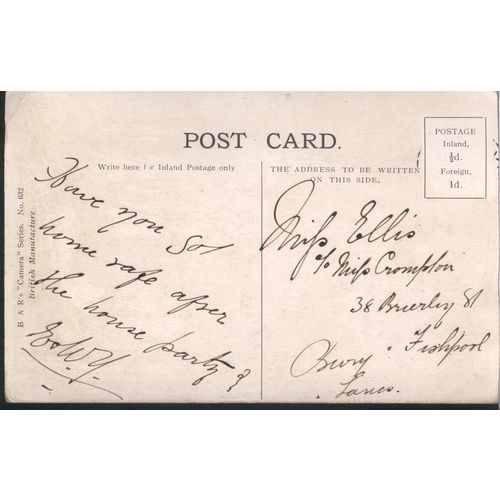 POST CARD.
Write here for Inland Postage only
THE ADDRESS TO BE WRITTEN
ON THIS SIDE.
POSTAGE
Inland,
½d.
Foreign,
1d.
B & R's "Camera" Series. No. 632
British Manufacture
Have you got
home safe after
the house party?
Miss Ellis
c/o Miss Crompton
38 Brierly St
Fishpool
Bury
Lancs.